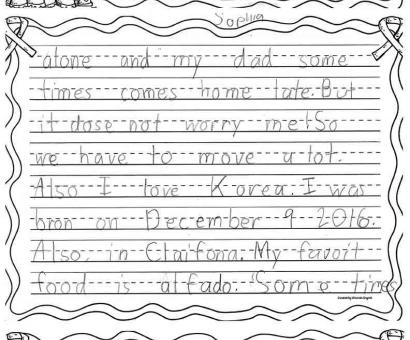 Sophia
alone and my dad some
times comes home late. But
it dose not worry me! So
we have to move a lot.
Also I love Korea. I was
bron on December 9 2016.
Also in Claifona. My favoit
food is alfado. Som e times